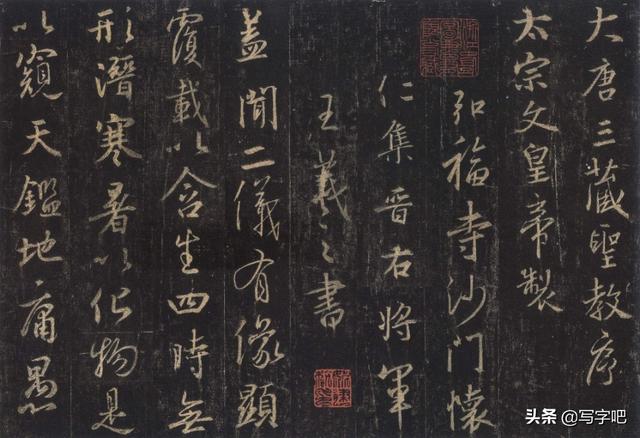 大唐三藏聖教序
太宗文皇帝製
弘福寺沙門懷
仁集晉右將軍
王羲之書
蓋聞二儀有像顯
覆載以含生四時無
形潛寒暑以化物是
以窺天鑑地庸愚
头条 @写字吧